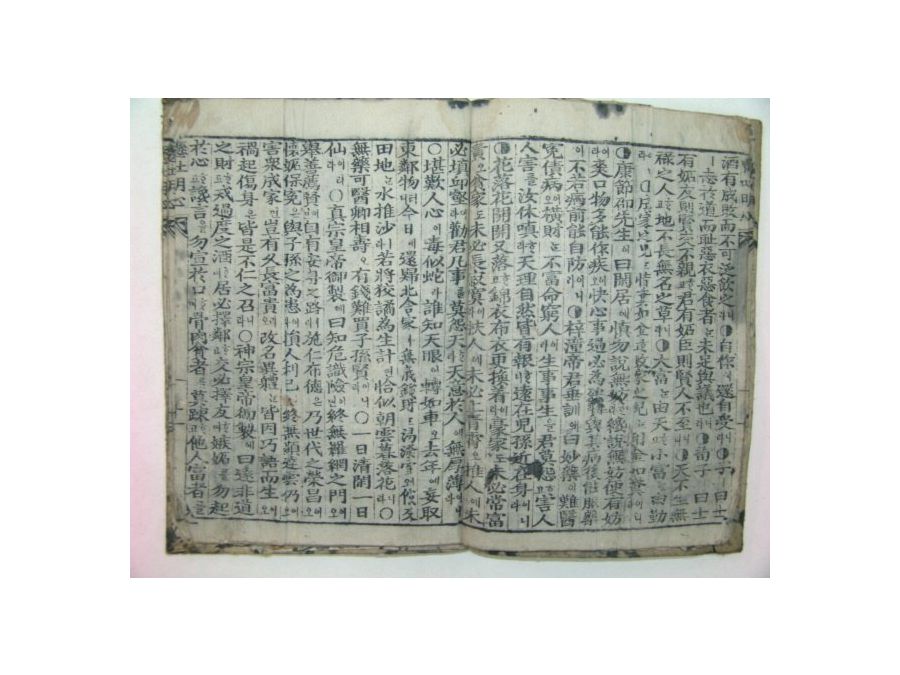 酒有成敗而不可泛飮之라◑自作이면還自受니라◑子ㅣ曰士
ㅣ志於道而恥惡衣惡食者는未足與議也니라◑荀子ㅣ曰士
有妬友則賢交不親고君有妬臣則賢人不至니라◑天不生無
祿之人고地不長無名之草니라◑大富는由天고小富는由勤
라◑成家之兒는惜糞如金고敗家之兒는用金如糞이니
◑康節邵先生이曰閑居에愼勿說無妨라纔說無妨便有妨
이라爽口物多能作疾오快心事過必爲殃라與其病後能服藥
이不若病前能自防니라◑梓潼帝君垂訓에曰妙藥도難醫
寃債病이오橫財는不富命窮人라生事事生을君莫怨고害人
人害를汝休嗔라天理自然皆有報니遠在兒孫近在身이니라
◑花落花開開又落고錦衣布衣更換着이라豪家도未必常富
貴오貧家도未必長寂寞라扶人에未必上靑霄오推人에未
必塡邱壑이라勸君凡事를莫怨天라天意於人에無厚薄니라
○堪歎人心이毒似蛇라誰知天眼이轉如車오去年에妄取
東鄰物터니今日에還歸北舍家라無義錢財는湯潑雪이오儻來
田地는水推沙라若將狡譎爲生計면恰似朝雲暮落花라○
無藥可醫卿相壽오有錢難買子孫賢이니라○一日淸閑一日
仙이니라○眞宗皇帝御製에曰知危識險면終無羅網之門오
擧善薦賢면自有安身之路라施仁布德은乃世代之榮昌오
懷妬保寃은與子孫之爲患이라損人利己면終無顯達雲仍오
害衆成家면豈有久長富貴리오改名異體는皆因巧語而生오
禍起傷身은皆是不仁之召라○神宗皇帝御製에曰遠非道
之財고戒過度之酒며居必擇鄰고交必擇友며嫉妬를勿起
於心고讒言을勿宣於口며骨肉貧者를莫踈고他人富者를